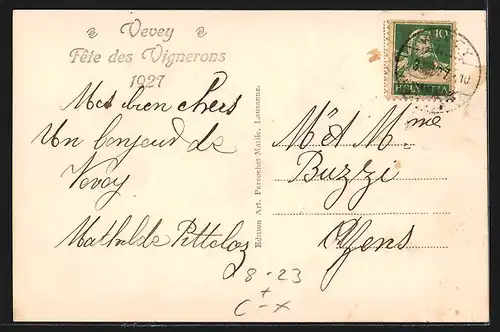 Vevey
Fête des Vignerons
1927
10
HELVETIA
Mes bien chers
Un bonjour de
Vevey
Mathilde Pitteloz
Edition Art. Perrochet-Matile, Lausanne.
M. et Mme
Buzzi
Yens
8-23
+
C-x